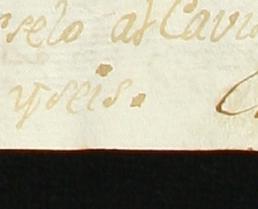 rselo al Cavi
y seis.